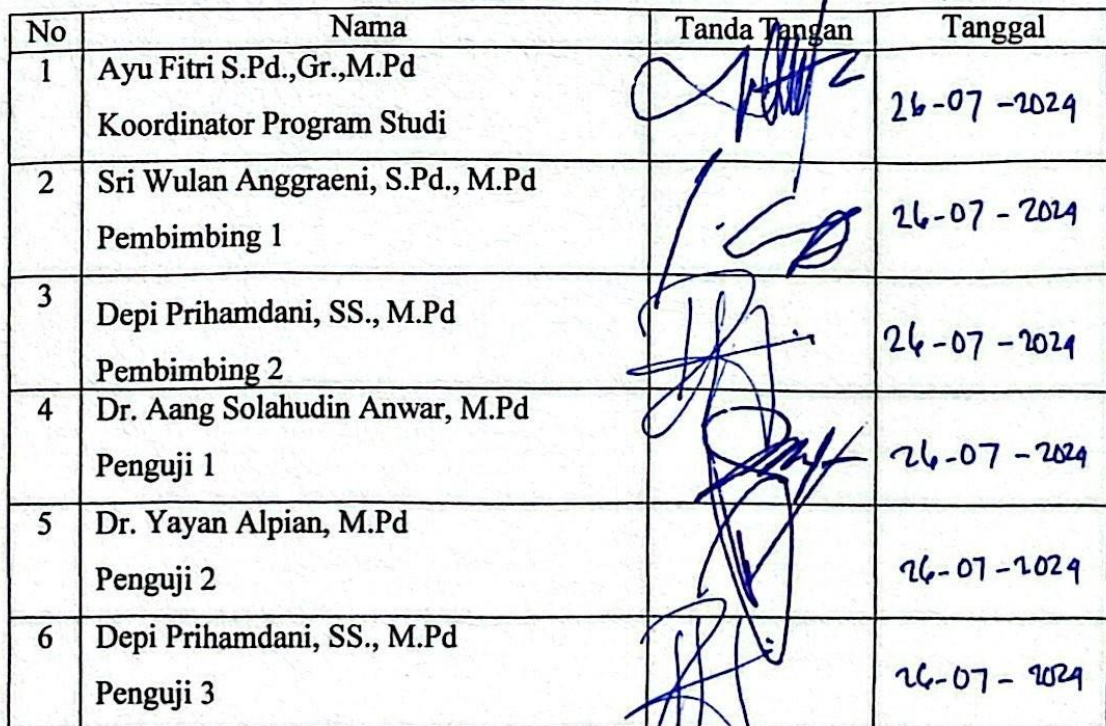 No Nama Tanda Tangan Tanggal
1 Ayu Fitri S.Pd.,Gr.,M.Pd
Koordinator Program Studi
26-07-2024
2 Sri Wulan Anggraeni, S.Pd., M.Pd
Pembimbing 1
26-07-2024
3
Depi Prihamdani, SS., M.Pd
Pembimbing 2
26-07-2024
4 Dr. Aang Solahudin Anwar, M.Pd
Penguji 1
26-07-2024
5 Dr. Yayan Alpian, M.Pd
Penguji 2
26-07-2024
6 Depi Prihamdani, SS., M.Pd
Penguji 3
26-07-2024